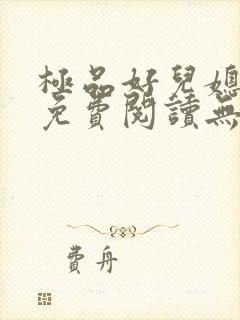 極品好兒媳
免費閱讀無
費舟